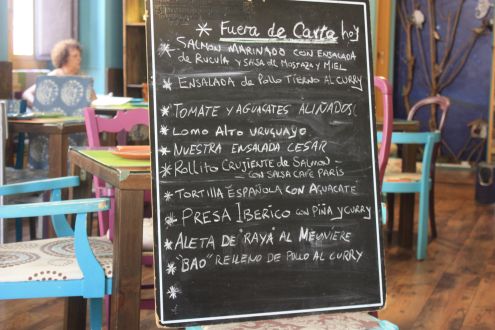 * Fuera de Carta hoy
* Salmon Marinado con ensalada
de rucula y salsa de mostaza y miel
* Ensalada de Pollo Tierno al curry
* Tomate y aguacates aliñados
* Lomo Alto uruguayo
* Nuestra ensalada Cesar
* Rollito Crujiente de Salmon -
- con salsa cafe paris
* Tortilla Española con aguacate
* Presa Iberico con piña y curry
* Aleta de "Raya" al Meuniere
* "Bao" relleno de pollo al curry
*